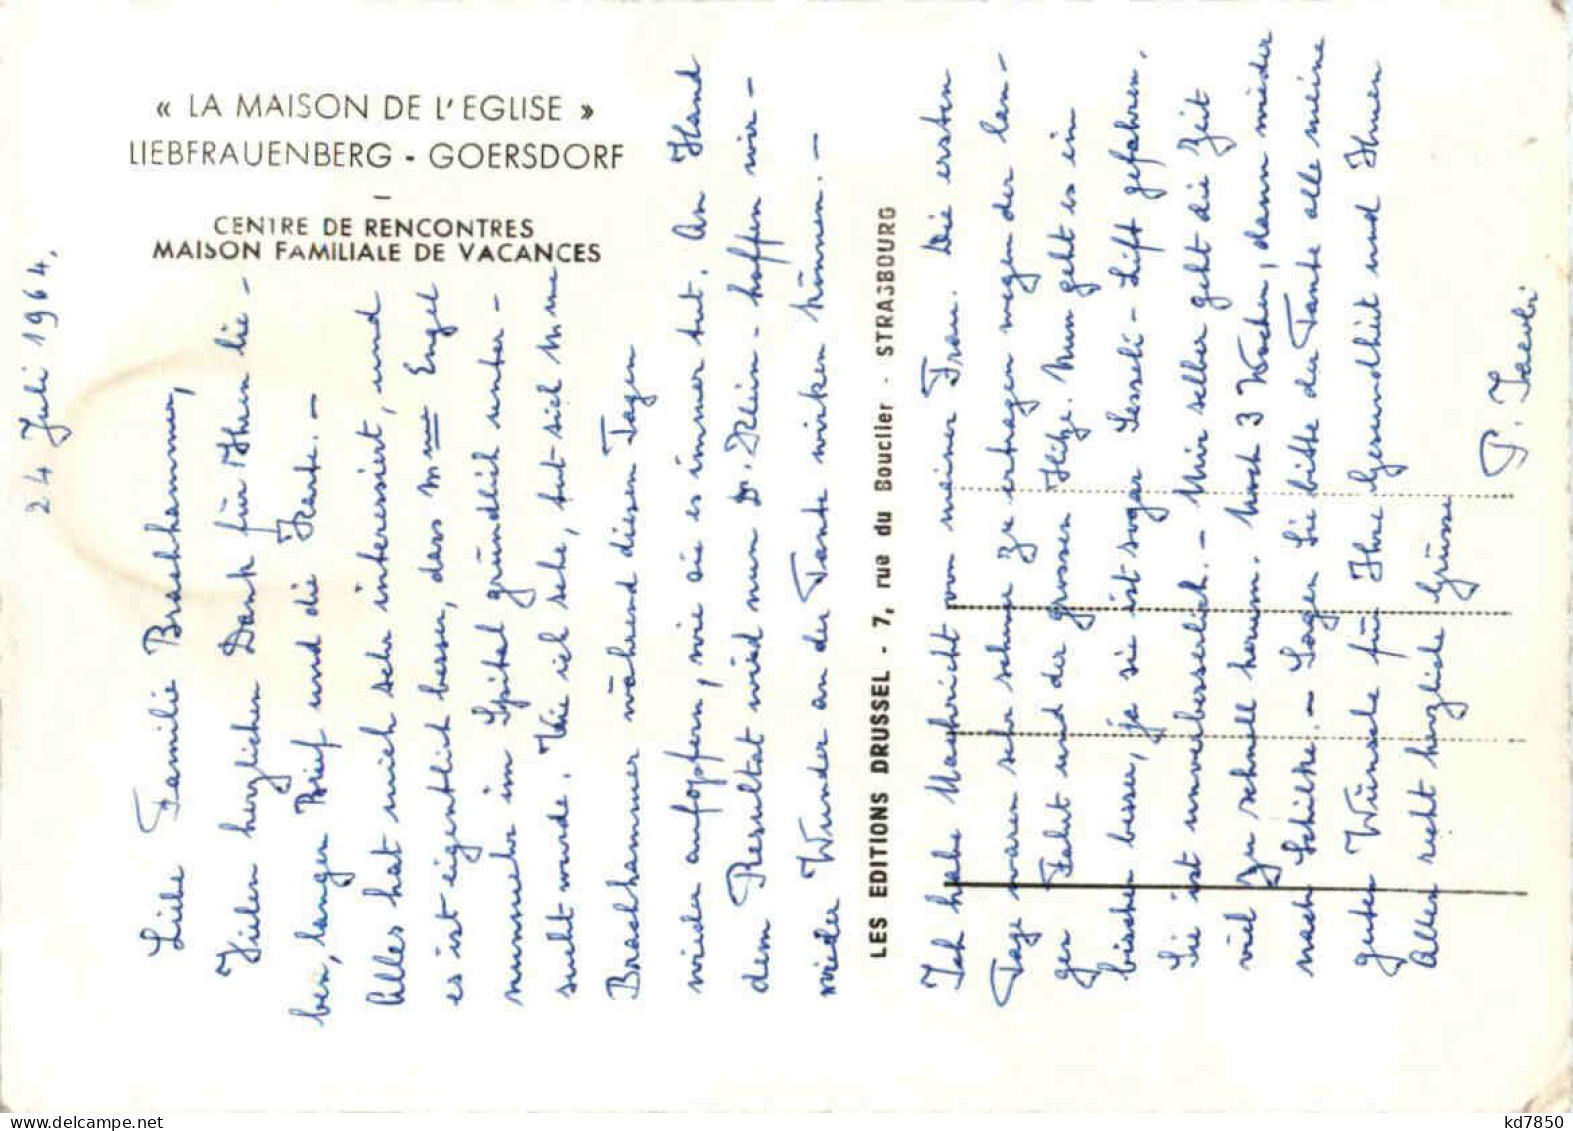 « LA MAISON DE L'EGLISE »
LIEBFRAUENBERG - GOERSDORF
CENTRE DE RENCONTRES
MAISON FAMILIALE DE VACANCES
24 Juli 1964.
Liebe Familie Brachhammer,
Vielen herzlichen Dank für Ihren lie-
ben, langen Brief und die Karte. -
Alles hat mich sehr interessiert, und
es ist eigentlich besser, dass Mme Engel
nunmehr im Spital gründlich unter-
sucht wurde. Wie ich sehe, tut sich Mme
Brachhammer während diesen Tagen
wieder aufopfern, wie sie es immer tut. An Hand
dem Resultat wird nun Dr. Klein - hoffen wir -
wieder Wunder an der Tante wirken können. -
LES EDITIONS DRUSSEL - 7, rue du Bouclier - STRASBOURG
Ich habe Nachricht von meiner Frau. Die ersten
Tage waren sehr schwer zu ertragen wegen der lan-
gen Fahrt und der grossen Hitze. Nun geht es ein
bischen besser, ja sie ist sogar Sesseli-Lift gefahren.
Sie ist unverbesserlich. - Mir selber geht die Zeit
viel zu schnell herum. Noch 3 Wochen, dann wieder
nach Schiltke. - Sagen Sie bitte der Tante alle meine
guten Wünsche für Ihre Gesundheit und Ihnen
Allen recht herzliche Grüsse
P. Jaeobi
kd7850